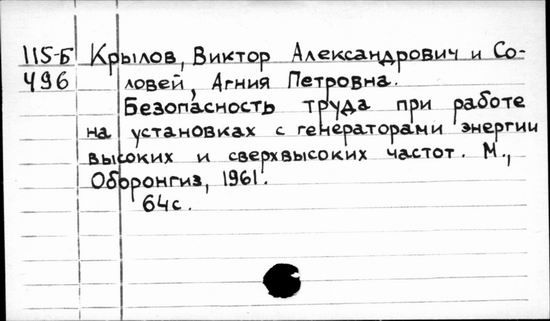 115-Б Крылов, Виктор Александрович и Со-
496 ловей, Агния Петровна.
Безопасность труда при работе
на установках с генераторами энергии
высоких и сверхвысоких частот. М.,
Оборонгиз, 1961.
64с.